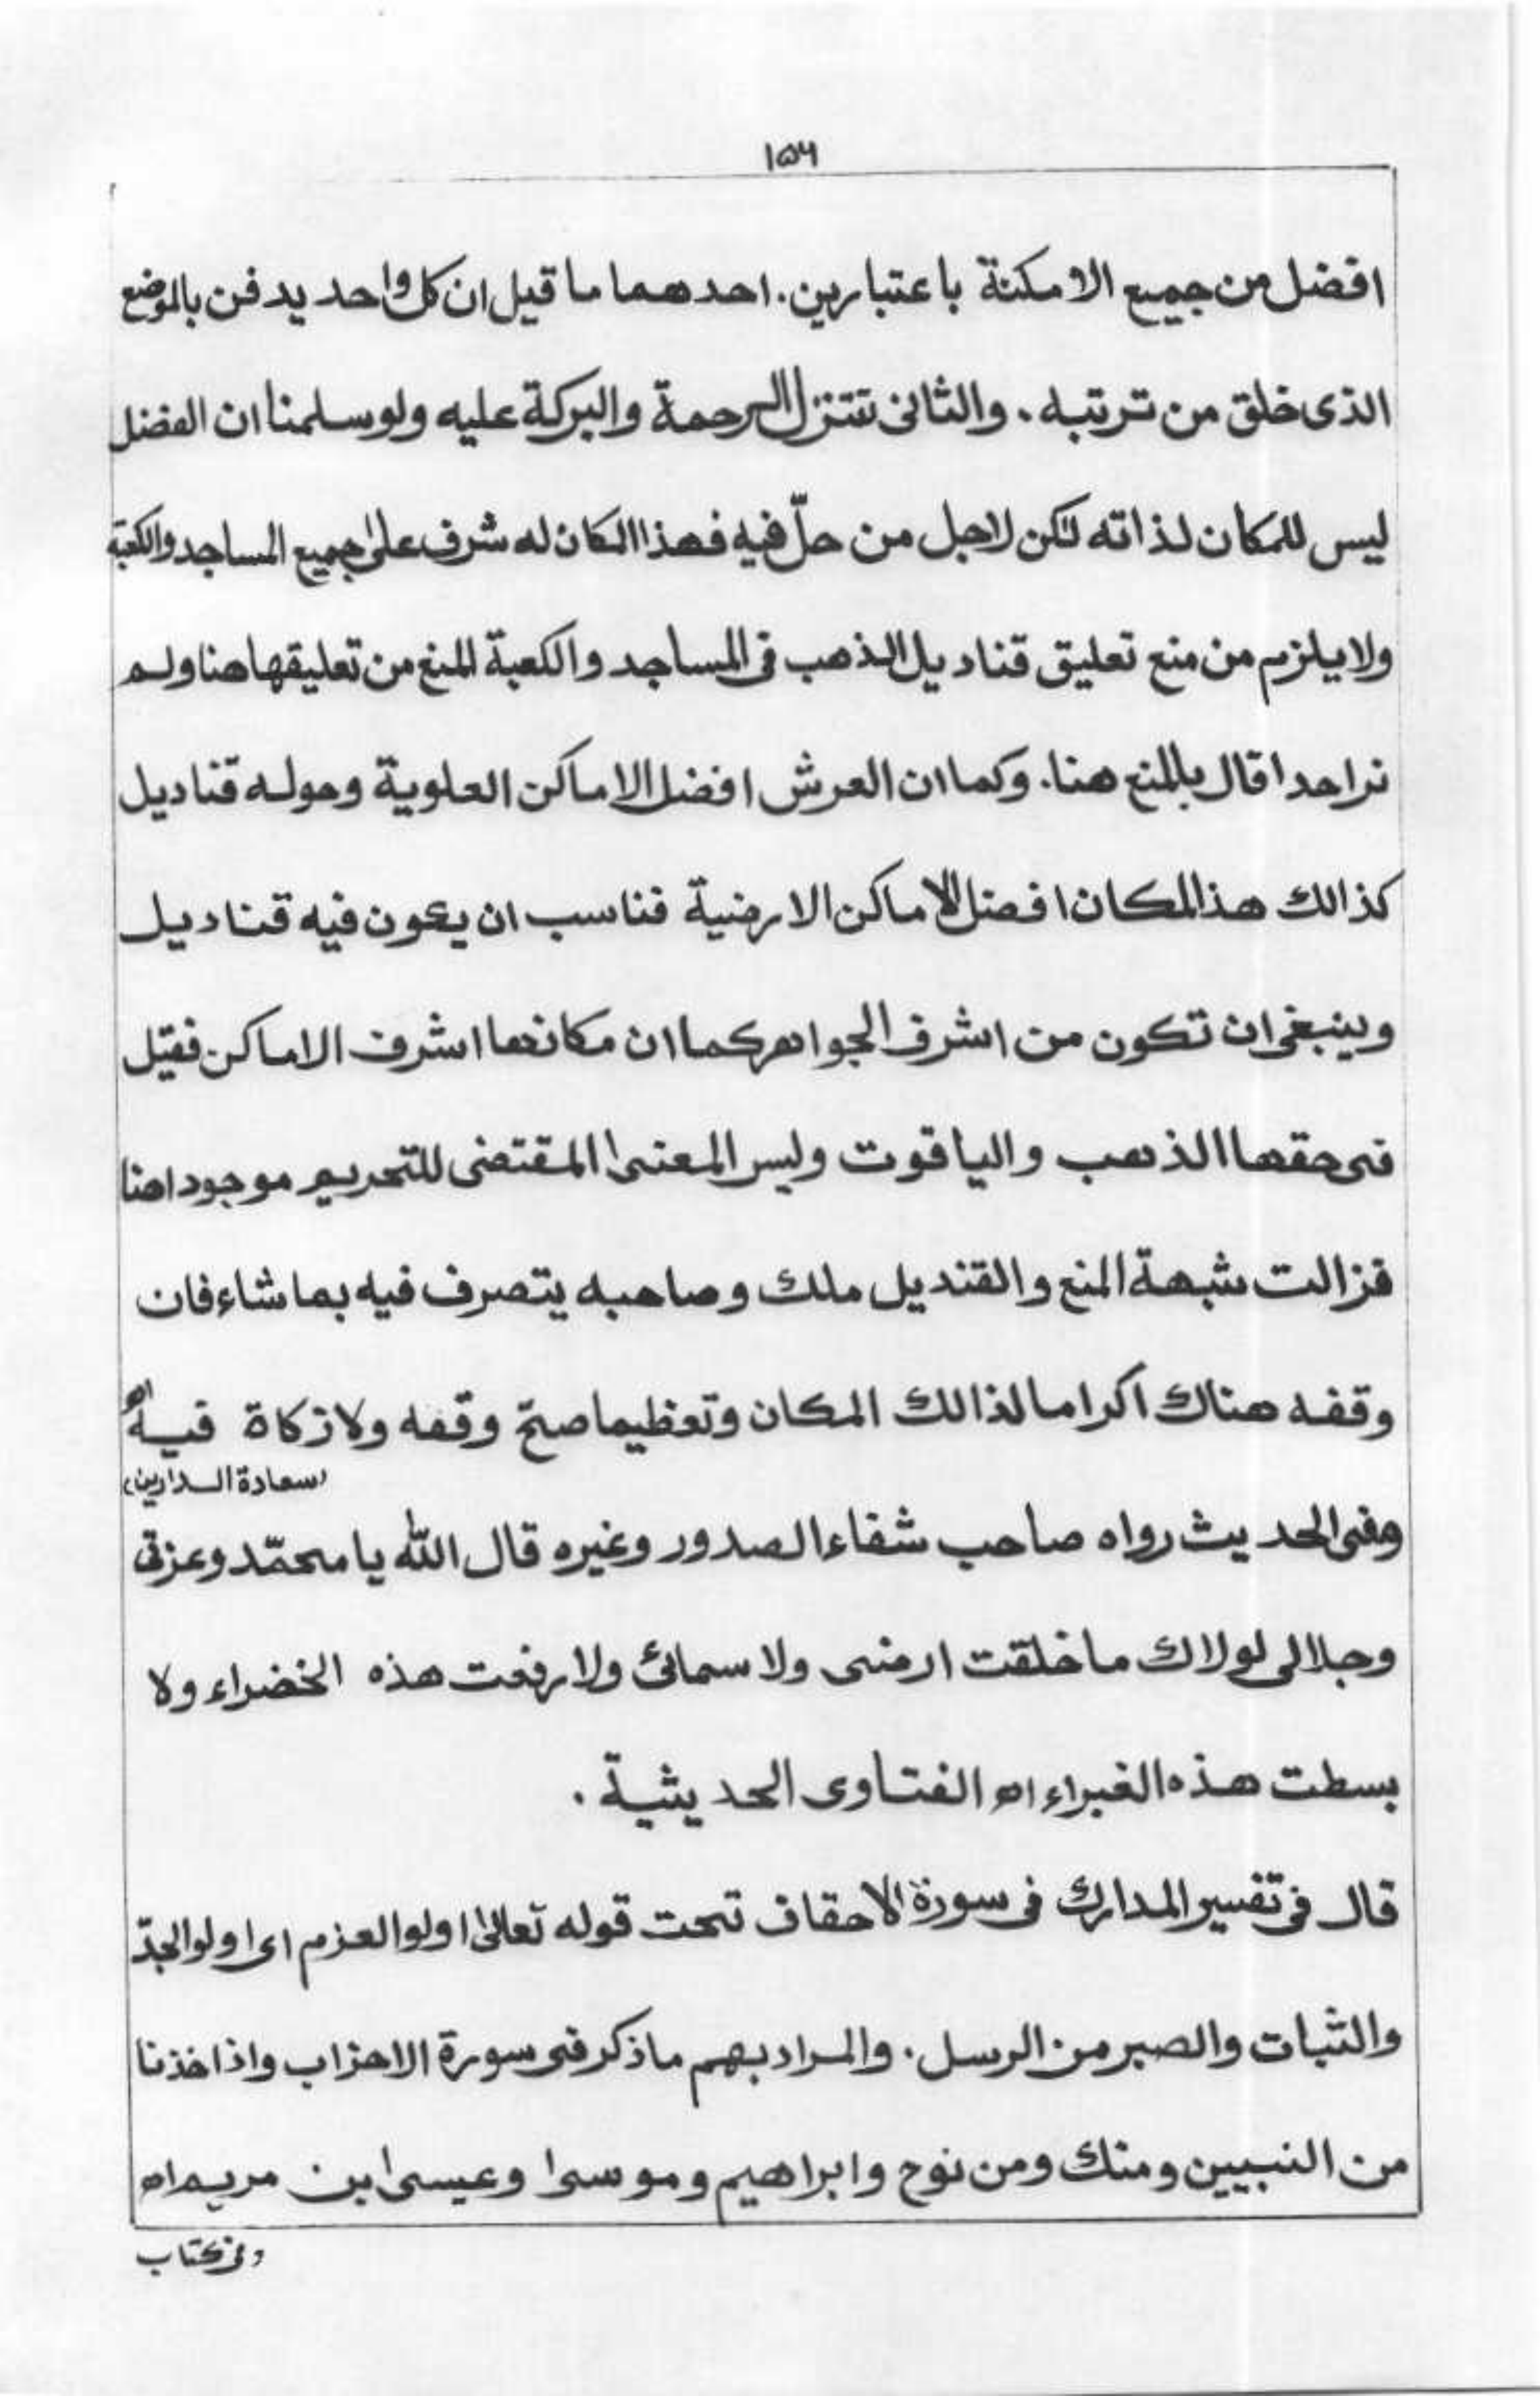 ۱۵۶
افضل من جميع الامكنة باعتبارين. احدهما ما قيل ان كل واحد يدفن بالموضع
الذى خلق من تربته. والثانى تتنزل الرحمة والبركة عليه ولو سلمنا ان الفضل
ليس للمكان لذاته لكن لاجل من حلّ فيه فهذا المكان له شرف على جميع المساجد والكعبة
ولا يلزم من منع تعليق قناديل الذهب فى المساجد والكعبة المنع من تعليقها هنا ولم
نر احدا قال بالمنع هنا. وكما ان العرش افضل الاماكن العلوية وحوله قناديل
كذالك هذ المكان افضل الاماكن الارضية فناسب ان يكون فيه قناديل
وينبغى ان تكون من اشرف الجواهر كما ان مكانها اشرف الاماكن فقيل
فى حقها الذهب والياقوت وليس المعنى المقتضى للتحريم موجودا هنا
فزالت شبهة المنع والقنديل ملك وصاحبه يتصرف فيه بما شاء فان
وقفه هناك اكراما لذالك المكان وتعظيما صحّ وقفه ولا زكاة فيه اه
(سعادة الدارين)
وفى الحديث رواه صاحب شفاء الصدور وغيره قال الله يا محمّد وعزتى
وجلالى لولاك ما خلقت ارضى ولا سمائى ولا رفعت هذه الخضراء ولا
بسطت هذه الغبراء اه الفتاوى الحديثية.
قال فى تفسير المدارك فى سورة الاحقاف تحت قوله تعالى اولوا العزم اى اولوا الجدّ
والثبات والصبر من الرسل. والمراد بهم ما ذكر فى سورة الاحزاب واذ اخذنا
من النبيين ومنك ومن نوح وابراهيم وموسى وعيسى ابن مريم اه
وفى كتاب